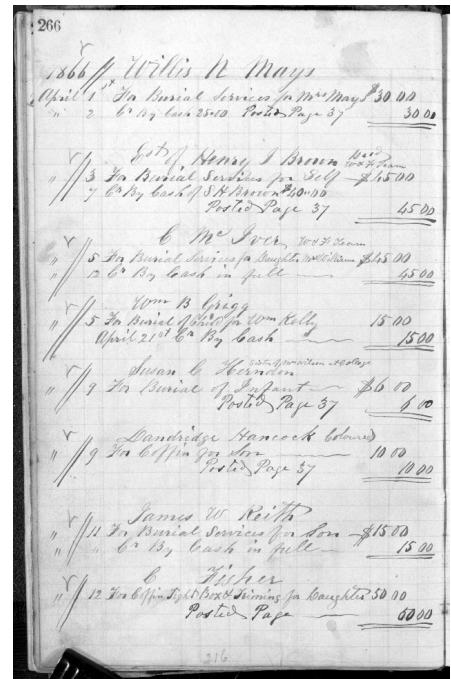 266
1866 Willis R Mays
April 1st For Burial Services for Mrs Mays $30 00
" 2 Cr By Cash 25.00 Posted Page 37 30 00
Est of Henry I Brown
" 3 For Burial Services for Self $45 00
7 Cr By Cash of S H Brown $40.00
Posted Page 37 45 00
C Mc Iver
" 5 For Burial Services for Daughter $45 00
" 12 Cr By Cash in full 45 00
Wm B Grigg
" 5 For Burial of Child for Wm Kelly 15 00
April 21st Cr By Cash 15 00
Susan C Herndon
" 9 For Burial of Infant $6 00
Posted Page 37 6 00
Dandridge Hancock Coloured
" 9 For Coffin for Son 10 00
Posted Page 37 10 00
James W Keith
" 11 For Burial Services for Son $15 00
" " Cr By Cash in full 15 00
C Fisher
" 12 For Coffin Tight Box & Triming for Daughter 50 00
Posted Page 50 00
216